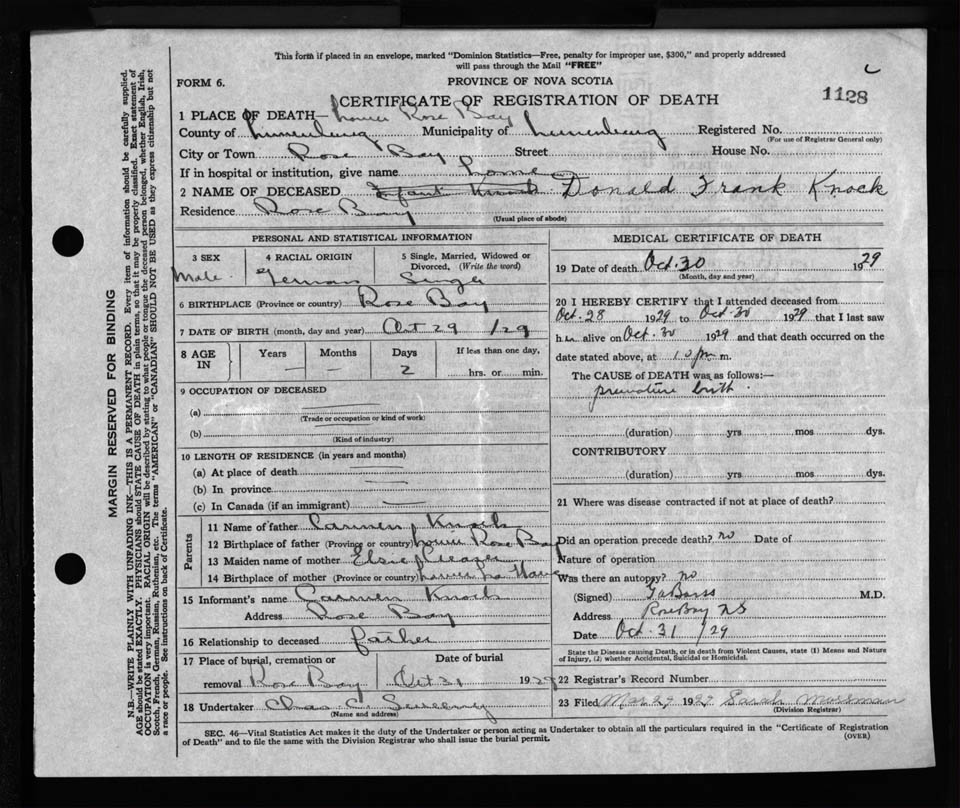 This form if placed in an envelope, marked "Dominion Statistics—Free, penalty for improper use, $300," and properly addressed
will pass through the Mail "FREE"
FORM 6.
PROVINCE OF NOVA SCOTIA
CERTIFICATE OF REGISTRATION OF DEATH
1128
1 PLACE OF DEATH— Lower Rose Bay
County of Lunenburg Municipality of Lunenburg Registered No.
(For use of Registrar General only)
City or Town Rose Bay Street House No.
If in hospital or institution, give name home
2 NAME OF DECEASED Infant Knock Donald Frank Knock
Residence Rose Bay
(Usual place of abode)
PERSONAL AND STATISTICAL INFORMATION
3 SEX 4 RACIAL ORIGIN 5 Single, Married, Widowed or
Divorced, (Write the word)
Male German Single
6 BIRTHPLACE (Province or country) Rose Bay
7 DATE OF BIRTH (month, day and year) Oct 29 /29
8 AGE IN Years Months Days If less than one day,
— — 2 hrs. or min.
9 OCCUPATION OF DECEASED
(a)
(Trade or occupation or kind of work)
(b)
(Kind of industry)
10 LENGTH OF RESIDENCE (in years and months)
(a) At place of death
(b) In province
(c) In Canada (if an immigrant)
Parents
11 Name of father Carmen Knock
12 Birthplace of father (Province or country) Lower Rose Bay
13 Maiden name of mother Elsie
14 Birthplace of mother (Province or country) Lower La Have
15 Informant's name Carmen Knock
Address Rose Bay
16 Relationship to deceased father
17 Place of burial, cremation or Date of burial
removal Rose Bay Oct 31 1929
18 Undertaker Chas C. Sweeny
(Name and address)
MEDICAL CERTIFICATE OF DEATH
19 Date of death Oct. 30 1929
(Month, day and year)
20 I HEREBY CERTIFY that I attended deceased from
Oct. 28 1929 to Oct. 30 1929 that I last saw
h im alive on Oct. 30 1929 and that death occurred on the
date stated above, at 10 pm m.
The CAUSE of DEATH was as follows:—
premature birth
(duration) yrs mos dys.
CONTRIBUTORY
(duration) yrs mos dys.
21 Where was disease contracted if not at place of death?
Did an operation precede death? no Date of
Nature of operation
Was there an autopsy? no
(Signed) M.D.
Address Rose Bay NS
Date Oct. 31 /29
State the Disease causing Death, or in death from Violent Causes, state (1) Means and Nature
of Injury, (2) whether Accidental, Suicidal or Homicidal.
22 Registrar's Record Number
23 Filed 19 Sarah Mossman
(Division Registrar)
SEC. 46—Vital Statistics Act makes it the duty of the Undertaker or person acting as Undertaker to obtain all the particulars required in the "Certificate of Registration
of Death" and to file the same with the Division Registrar who shall issue the burial permit.
(OVER)
MARGIN RESERVED FOR BINDING
N.B.—WRITE PLAINLY WITH UNFADING INK—THIS IS A PERMANENT RECORD. Every item of information should be carefully supplied.
AGE should be stated EXACTLY. PHYSICIANS should STATE CAUSE OF DEATH in plain terms, so that it may be properly classified. Exact statement of
OCCUPATION is very important. RACIAL ORIGIN will be described by stating to what people or tongue the deceased person belonged, whether English, Irish,
Scotch, French, German, Russian, Ruthenian, etc. The terms "AMERICAN" or "CANADIAN" SHOULD NOT BE USED as they express citizenship but not
a race or people. See instructions on back of Certificate.